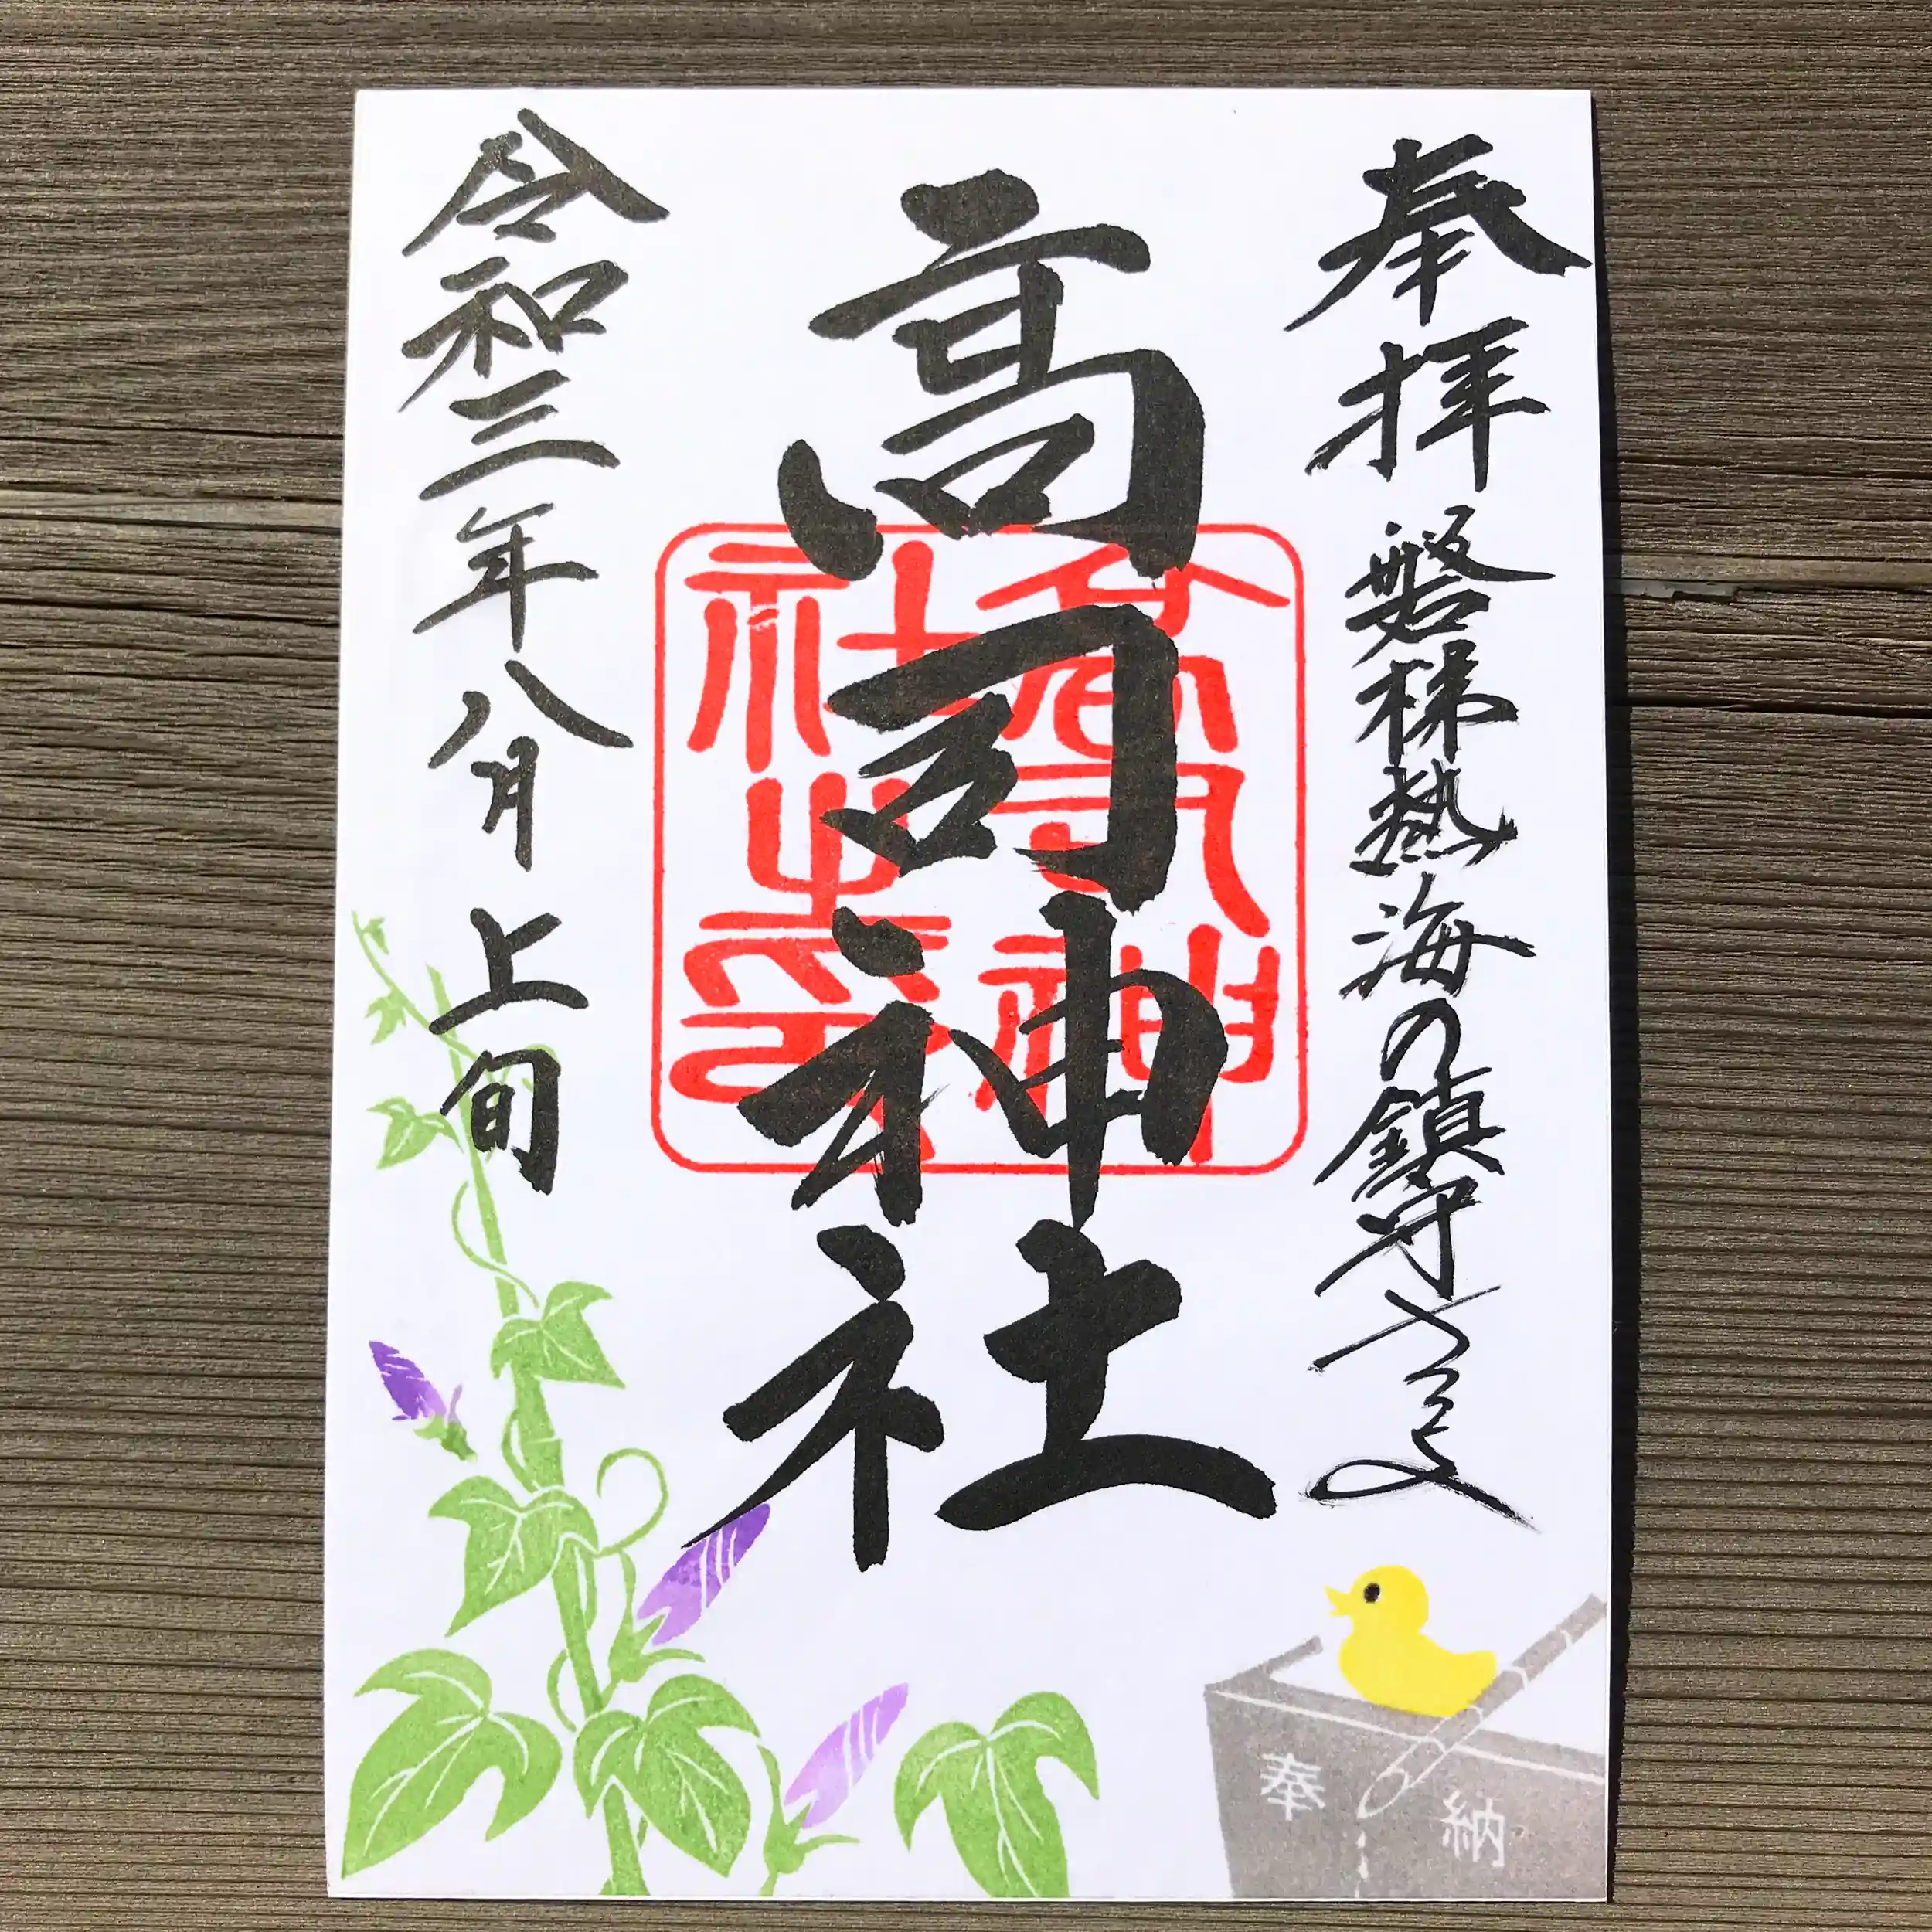 奉拝 磐梯熱海の鎮守
高司神社
高司神社之印
令和三年八月上旬
奉納